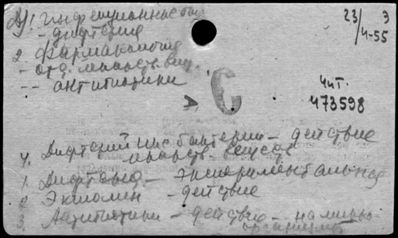 1. Инфекционные бол.
- дифтерия
23/4-55
Э
2. Фармакология
- отд. лекарств. вещ.
-- антибиотики
С
Чит.
473598
4. Дифтерий бактерии - действие
лекарств. веществ
1. Дифтерия - экспериментальная
2. Экмолин - действие
3. Антибиотики - действие - на микро-
организмы